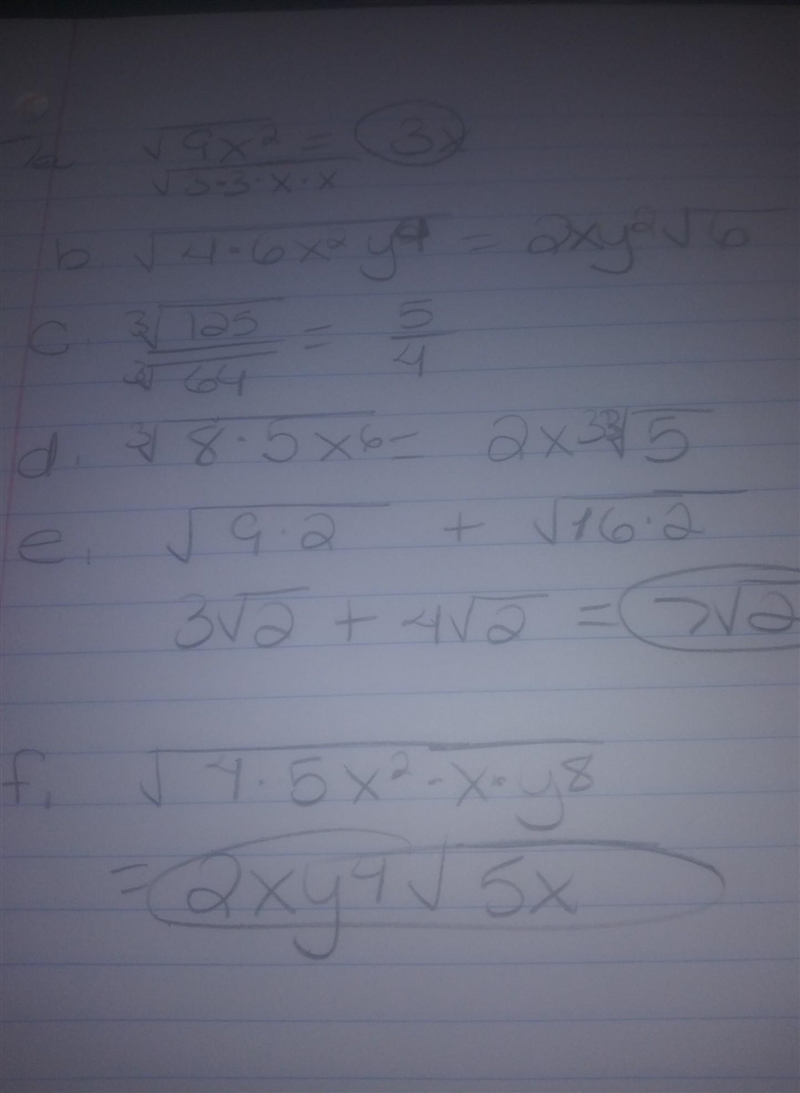 a √9x² = 3x
√3·3·x·x
b √4·6x²y⁴ = 2xy²√6
c. ∛125 / ∛64 = 5/4
d. ∛8·5x⁶ = 2x³∛5
e. √9·2 + √16·2
3√2 + 4√2 = 7√2
f. √4·5x²·x·y⁸
= 2xy⁴√5x